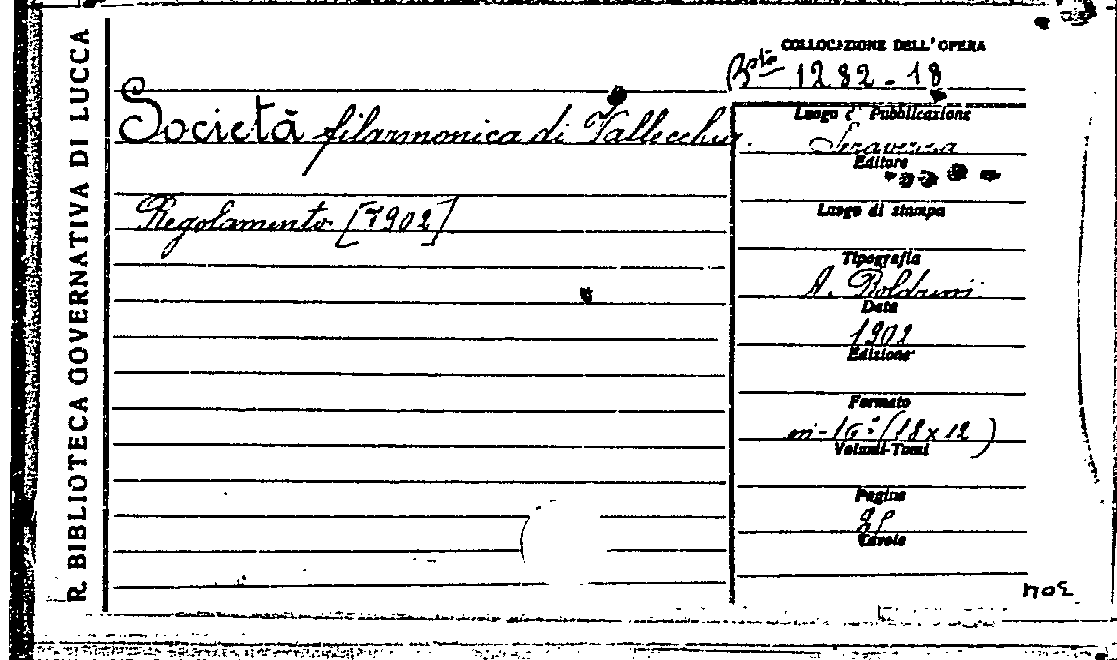 R. BIBLIOTECA GOVERNATIVA DI LUCCA
COLLOCAZIONE DELL'OPERA
Bta 1282-18
Società filarmonica di Vallecchia.
Regolamento [1902]
Luogo di Pubblicazione
Seravezza
Editore
Luogo di stampa
Tipografia
A. Boldrini
Data
1902
Edizione
Formato
in-16° (18x12)
Volumi-Tomi
Pagine
Tavole